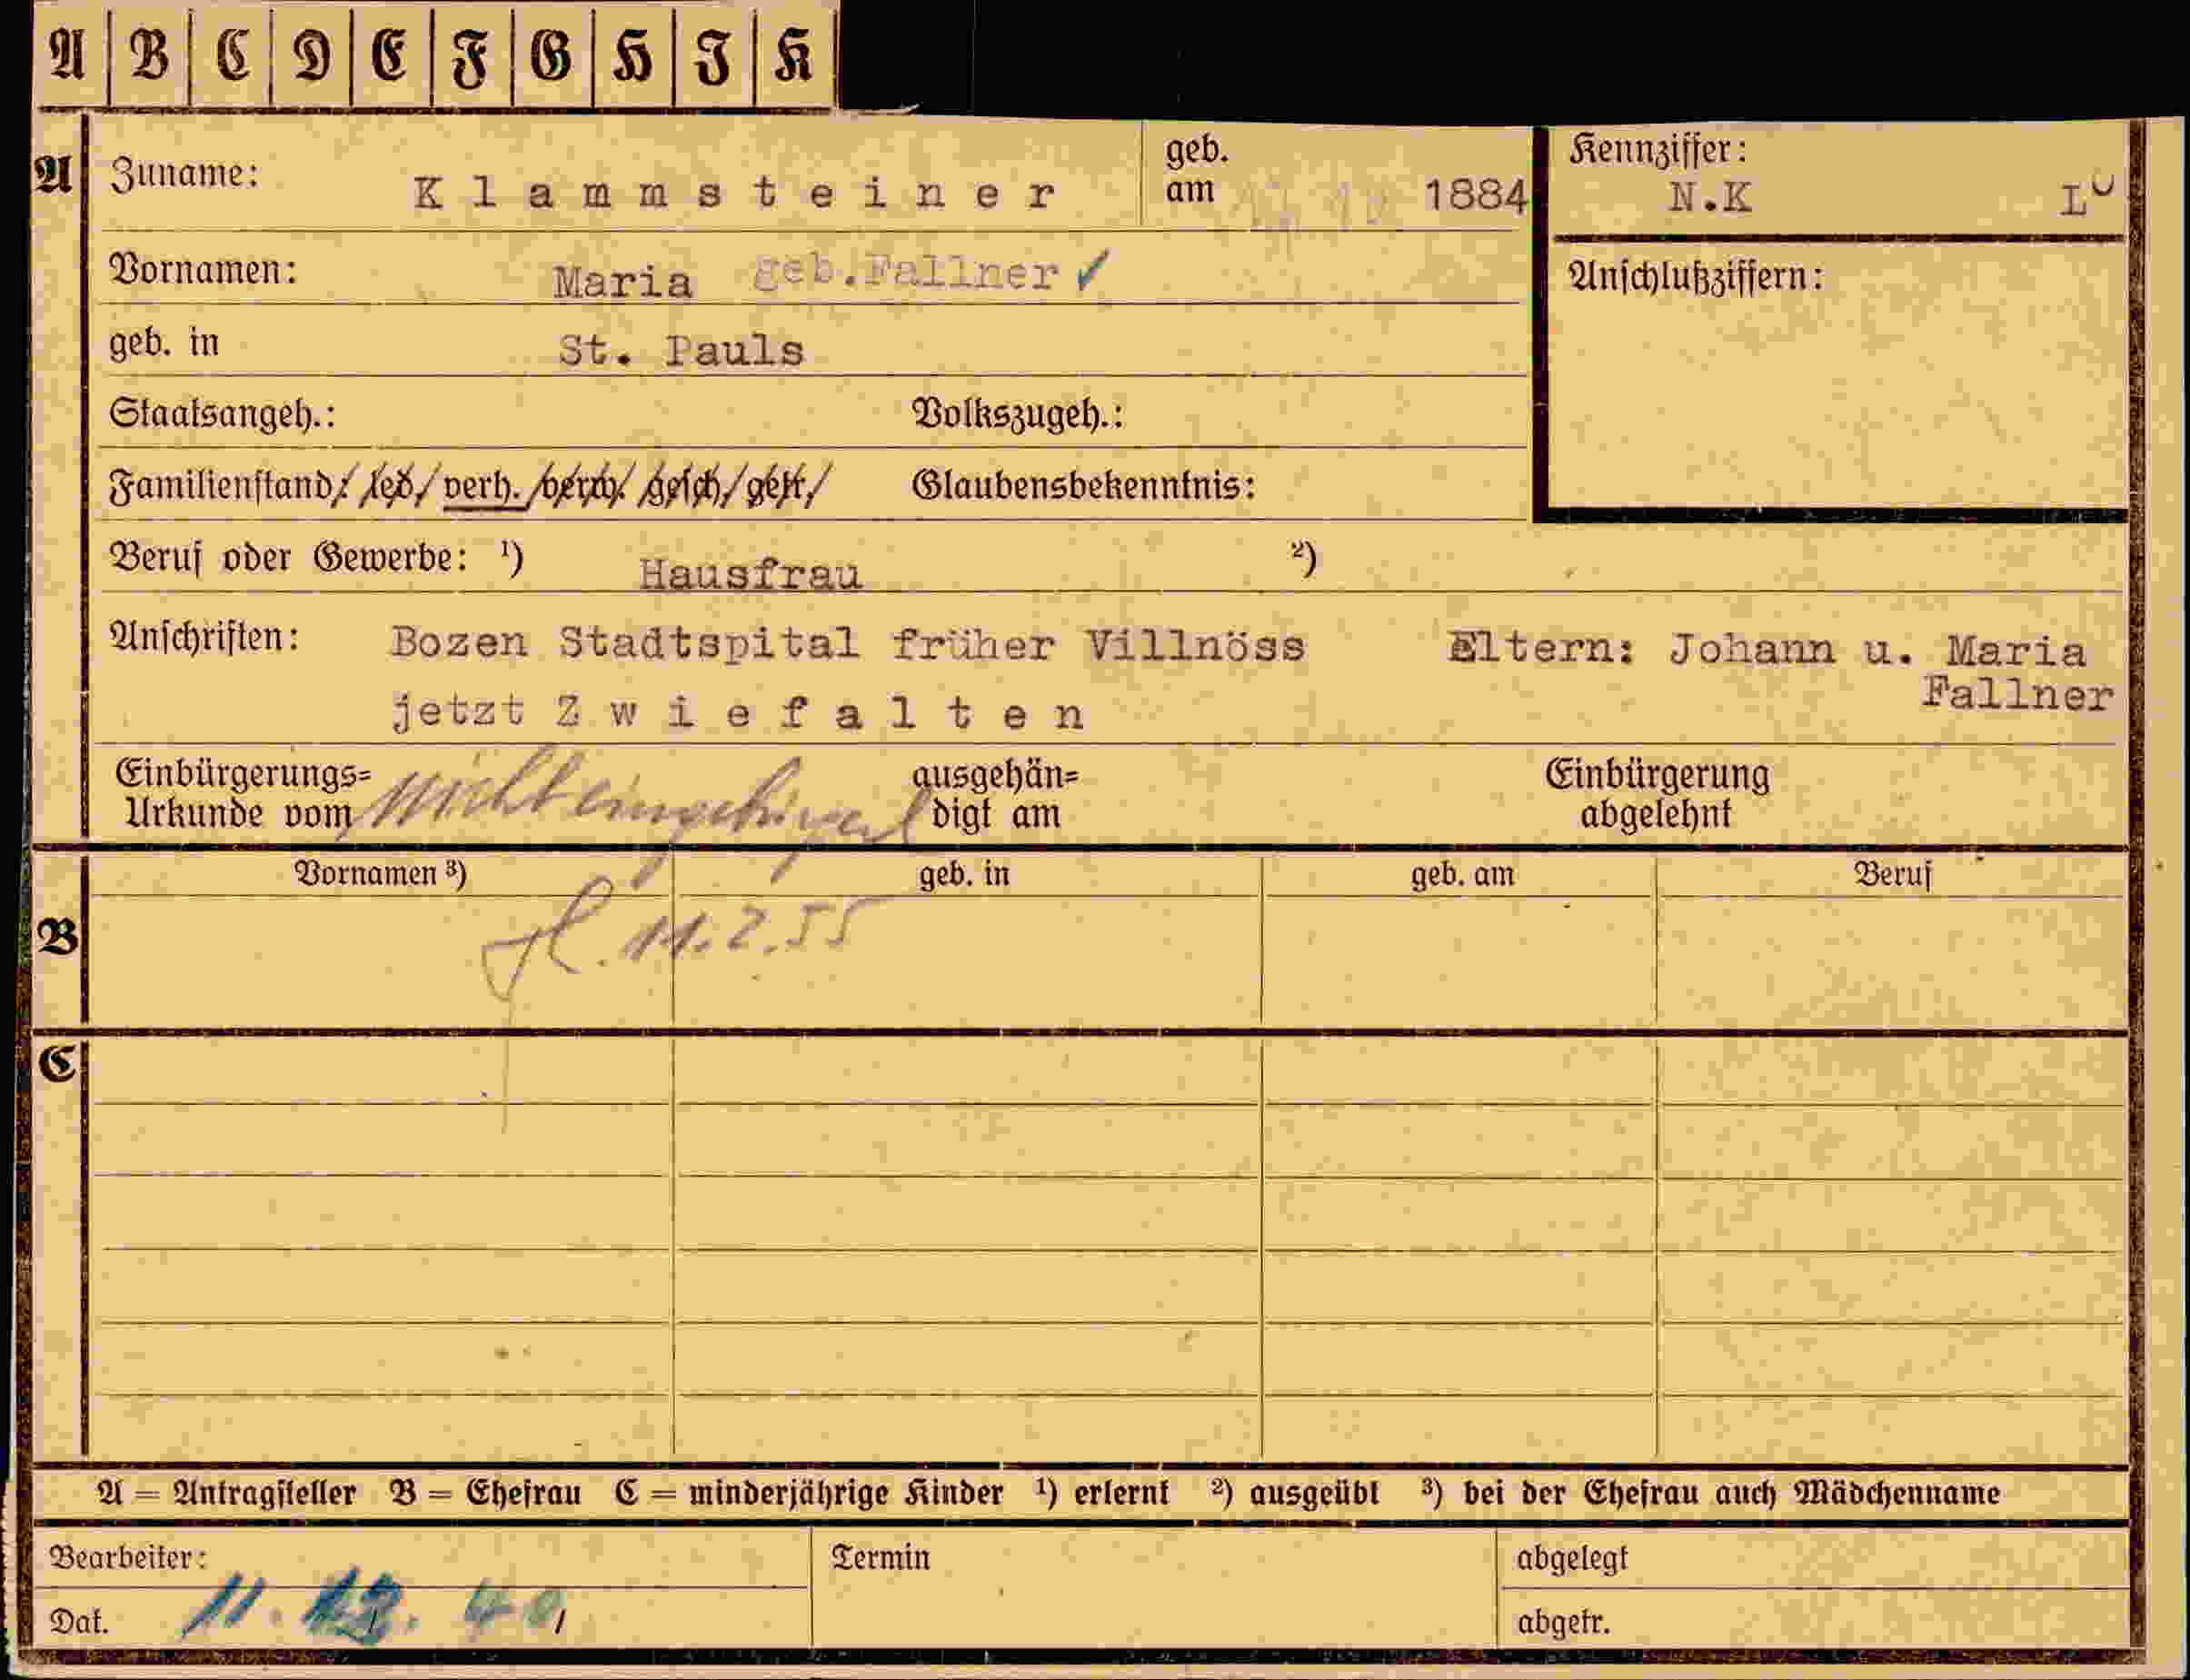 A B C D E F G H I K
A Zuname: Klammsteiner geb. am 1884 Kennziffer: N.K L
Vornamen: Maria geb.Fallner ✓ Anschlußziffern:
geb. in St. Pauls
Staatsangeh.: Volkszugeh.:
Familienstand: led/ verh. verw. gesch. getr. Glaubensbekenntnis:
Beruf oder Gewerbe: ¹) Hausfrau ²)
Anschriften: Bozen Stadtspital früher Villnöss Eltern: Johann u. Maria
Fallner
jetzt Zwiefalten
Einbürgerungs= ausgehän= Einbürgerung
Urkunde vom nicht eingebürgert digt am abgelehnt
Vornamen ³) geb. in geb. am Beruf
B 11.2.55
C
A = Antragsteller B = Ehefrau C = minderjährige Kinder ¹) erlernt ²) ausgeübt ³) bei der Ehefrau auch Mädchenname
Bearbeiter: Termin abgelegt
Dat. 11. 12. 40 abgetr.